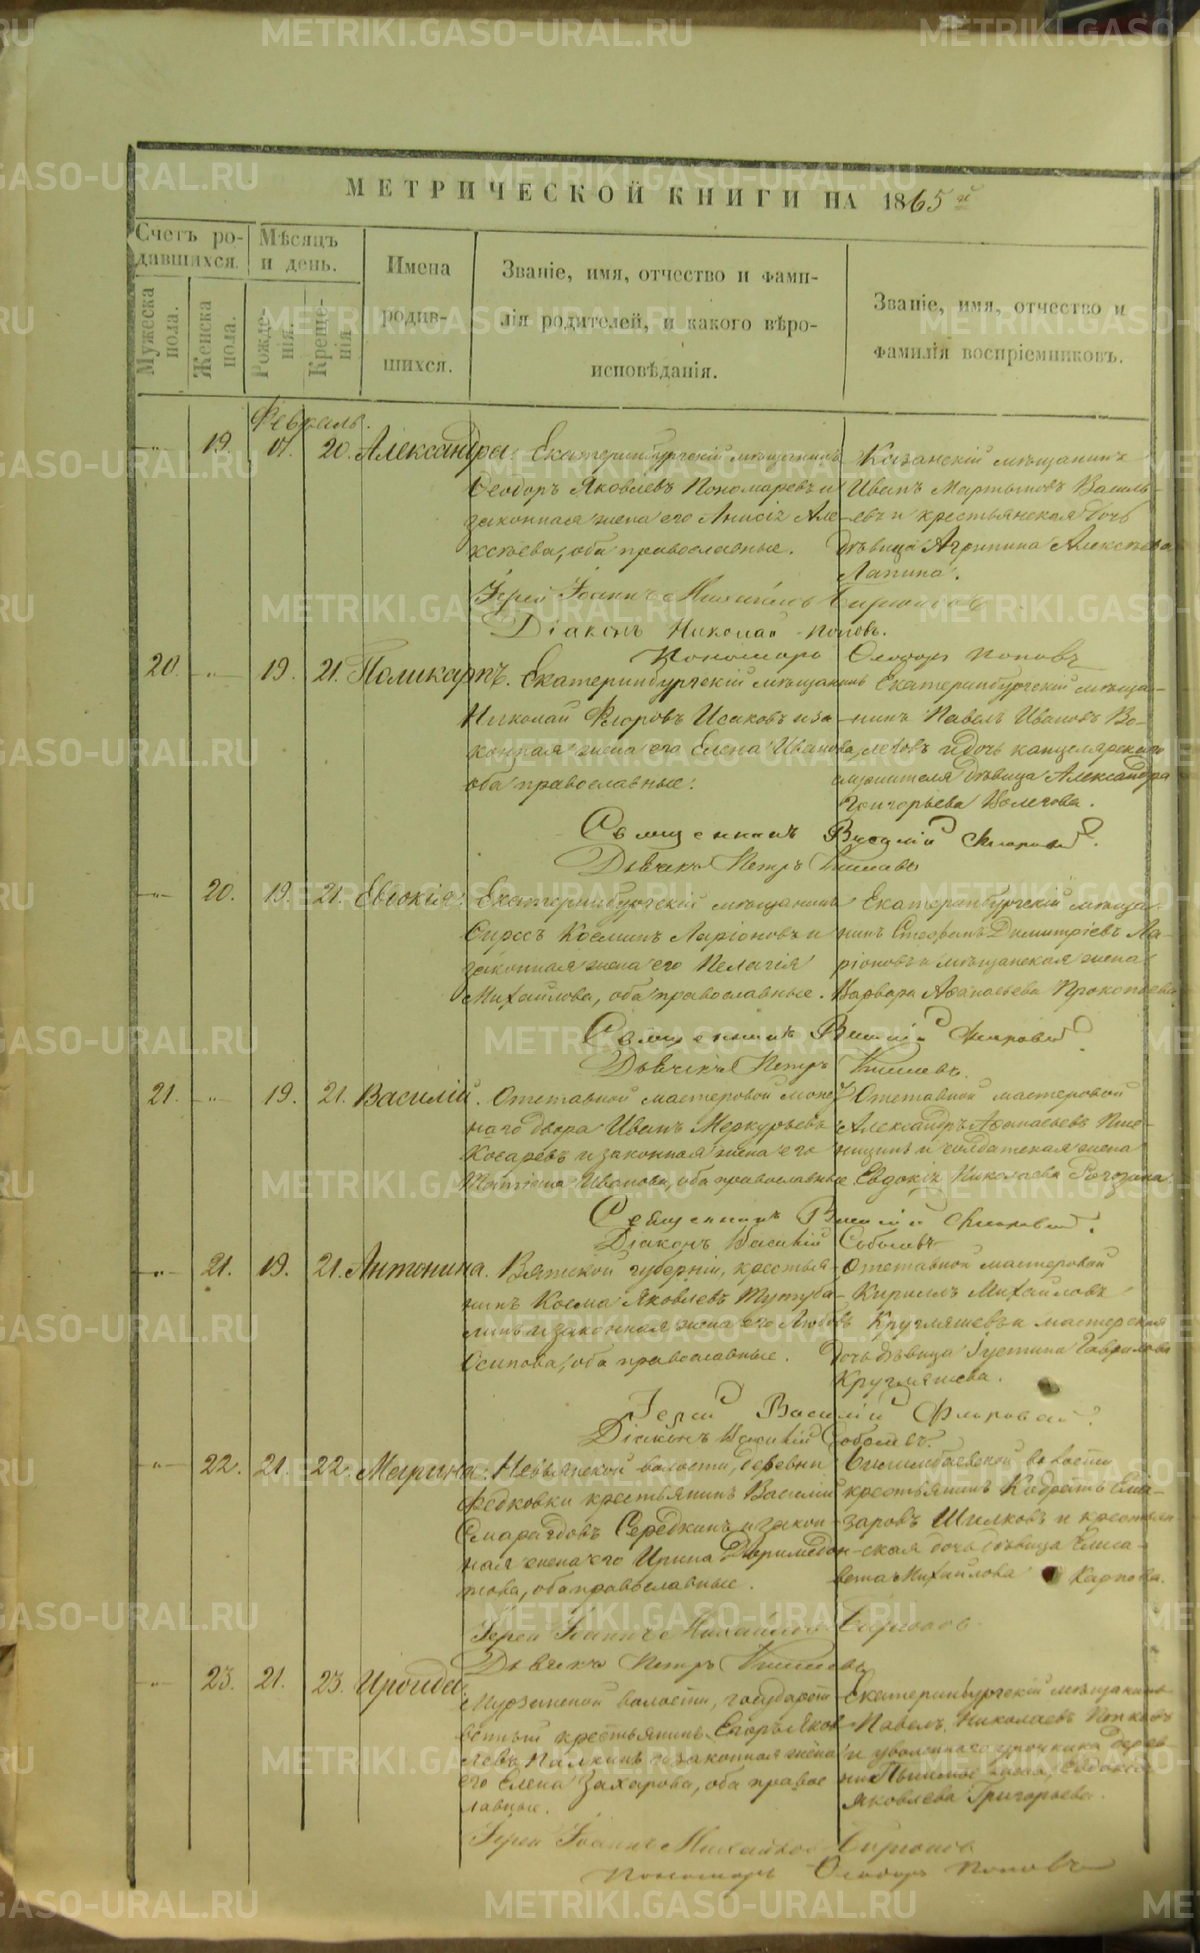 МЕТРИЧЕСКОЙ КНИГИ НА 1865 й
Счетъ ро-
давшихся.
Мѣсяцъ
и день.
Мужеска
пола.
Женска
пола.
Рожде-
нія.
Креще-
нія
Имена
родив-
шихся.
Званіе, имя, отчество и фами-
лія родителей, и какого вѣро-
исповѣданія.
Званіе, имя, отчество и
фамилія воспріемниковъ.
Февраль.
19. 17. 20. Александра. Екатеринбургскій мѣщанинъ
Ѳеодоръ Яковлевъ Пономаревъ и
законная жена его Анисія Але-
ксѣева, оба православные.
Казанскій мѣщанинъ
Иванъ Мартыновъ Василь-
евъ и крестьянская дочь
дѣвица Агрипина Алексѣева
Лапина.
Іерей Іоаннъ Михайловъ
Діаконъ Николай Поповъ.
Пономарь Ѳеодоръ Поповъ
20. 19. 21. Поликарпъ. Екатеринбургскій мѣщанинъ
Николай Ѳедоровъ Исаковъ и за-
конная жена его Елена Иванова,
оба православные.
Екатеринбургскій мѣща-
нинъ Павелъ Ивановъ Во-
леговъ и дочь канцелярскаго
служителя дѣвица Александра
Григорьева Волегова.
Священникъ Василій Флоровскій.
Дьячекъ Петръ
20. 19. 21. Евдокія. Екатеринбургскій мѣщанинъ
Козминъ Ларіоновъ и
законная жена его Пелагія
Михайлова, оба православные.
Екатеринбургскій мѣща-
нинъ Стефанъ Димитріевъ Ла-
ріоновъ и мѣщанская жена
Варвара Аѳанасьева Прокопьева
Священникъ Василій Флоровскій
Дьячекъ Петръ
21. 19. 21. Василій. Отставной мастеровой монет-
наго двора Иванъ Меркурьевъ
Косаревъ и законная жена его
Иванова, оба православные
Отставной мастеровой
Александръ Аѳанасьевъ Пше-
ницинъ и солдатская жена
Евдокія Николаева Рогозина
Священникъ Василій Флоровскій.
Діаконъ Василій Соболевъ
21. 19. 21. Антонина. Вятской губерніи, крестья-
нинъ Козма Яковлевъ Тутуба-
линъ и законная жена его Любовь
Осипова, оба православные.
Отставной мастеровой
Кириллъ Михайловъ
Кругляшевъ и мастерская
дочь дѣвица Іустина Гаврилова
Кругляшева.
Іерей Василій Флоровскій.
Діаконъ Василій Соболевъ.
22. 21. 22. Марина. Невьянской волости, деревни
Ѳедковки крестьянинъ Василій
Смарагдовъ Середкинъ и закон-
ная жена его Ирина
оба православные.
Билимбаевской волости
крестьянинъ Кодратъ Елиа-
заровъ Шилковъ и крестьян-
ская дочь дѣвица Елиса-
вета Михайлова Карпова.
Іерей Іоаннъ Михайловъ
Дьячекъ Петръ
23. 21. 23. Ироида. Мурзинской волости, государст-
венный крестьянинъ Егоръ Яков-
левъ Палкинъ и законная жена
его Елена Захарова, оба право-
славные.
Екатеринбургскій мѣщанинъ
Павелъ Николаевъ
и уволеннаго урочника дерев-
ни жена, Евдокія
Яковлева Григорьева.
Іерей Іоаннъ Михайловъ
Пономарь Ѳеодоръ Поповъ
METRIKI.GASO-URAL.RU